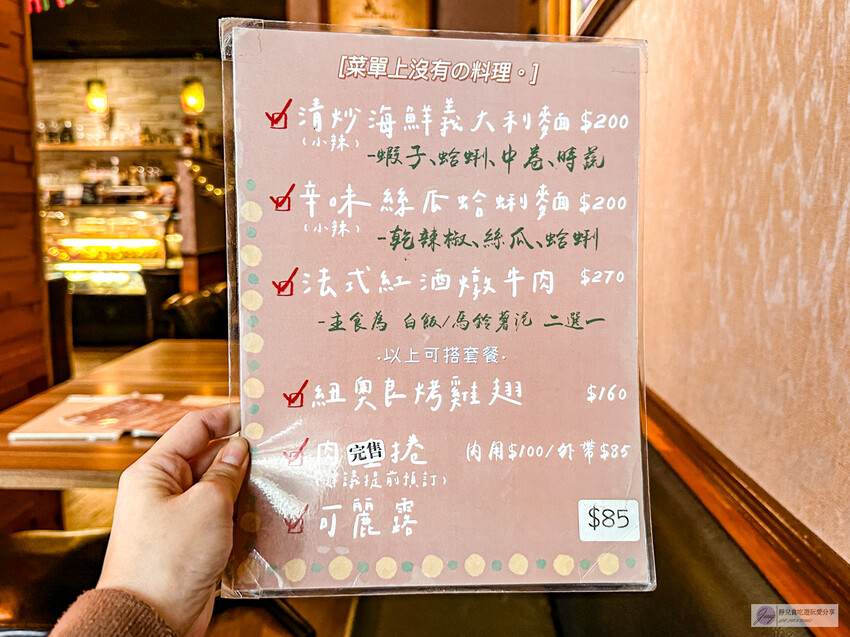 [菜單上沒有の料理。]
清炒海鮮義大利麵 $200
(小辣)
-蝦子、蛤蜊、中卷、時蔬
辛味絲瓜蛤蜊麵 $200
(小辣)
-乾辣椒、絲瓜、蛤蜊
法式紅酒燉牛肉 $270
-主食為 白飯/馬鈴薯泥 二選一
·以上可搭套餐·
紐奧良烤雞翅 $160
肉 完售 捲 內用$100/外帶$85
議提前預訂)
可麗露 $85
靜兒貪吃遊玩愛分享